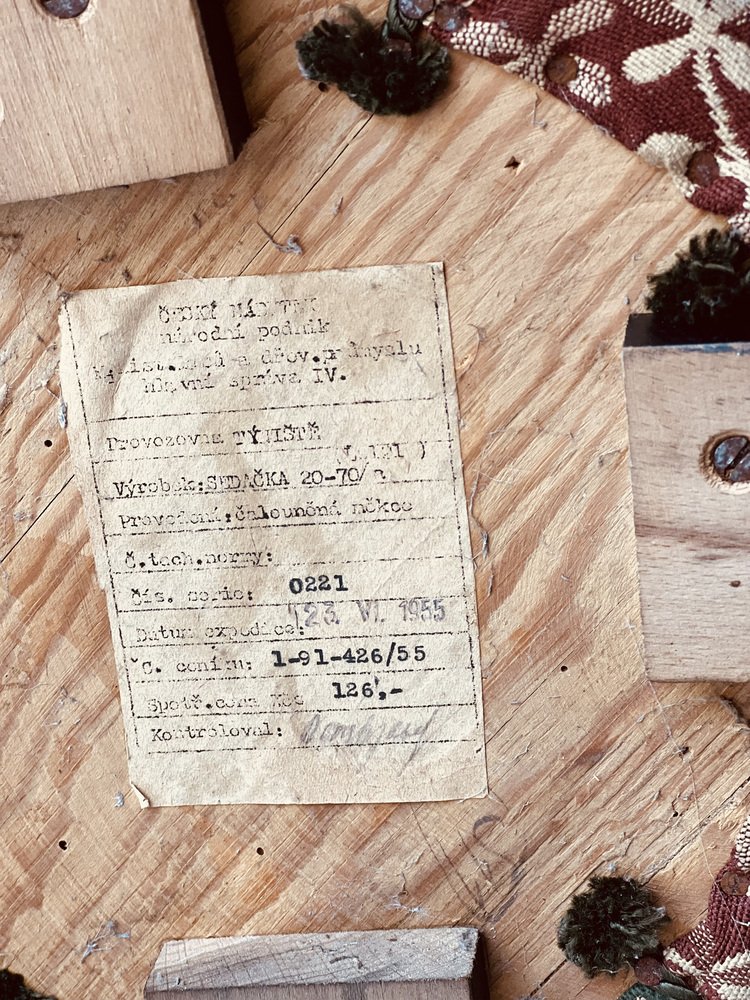 ČESKÝ NÁBYTEK
národní podnik
a dřev.průmyslu
hlavní správa IV.
Provozovna TÝNIŠTĚ
Výrobek:SEDAČKA 20-70/
Provedení:čalouněná měkce
Č.tech.normy:
čís. serie: 0221
Datum expedice: 23. VI. 1955
Č. ceníku: 1-91-426/55
Spotř.cena Kčs 126,-
Kontroloval: